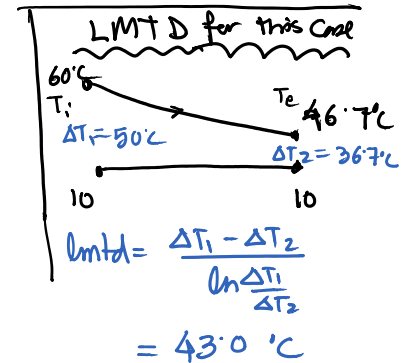 LMTD for this Case
60°C
Ti
Te
46.7°C
ΔT1=50°C
ΔT2=36.7°C
10
10
lmtd= ΔT1-ΔT2
ln ΔT1
ΔT2
= 43.0 °C